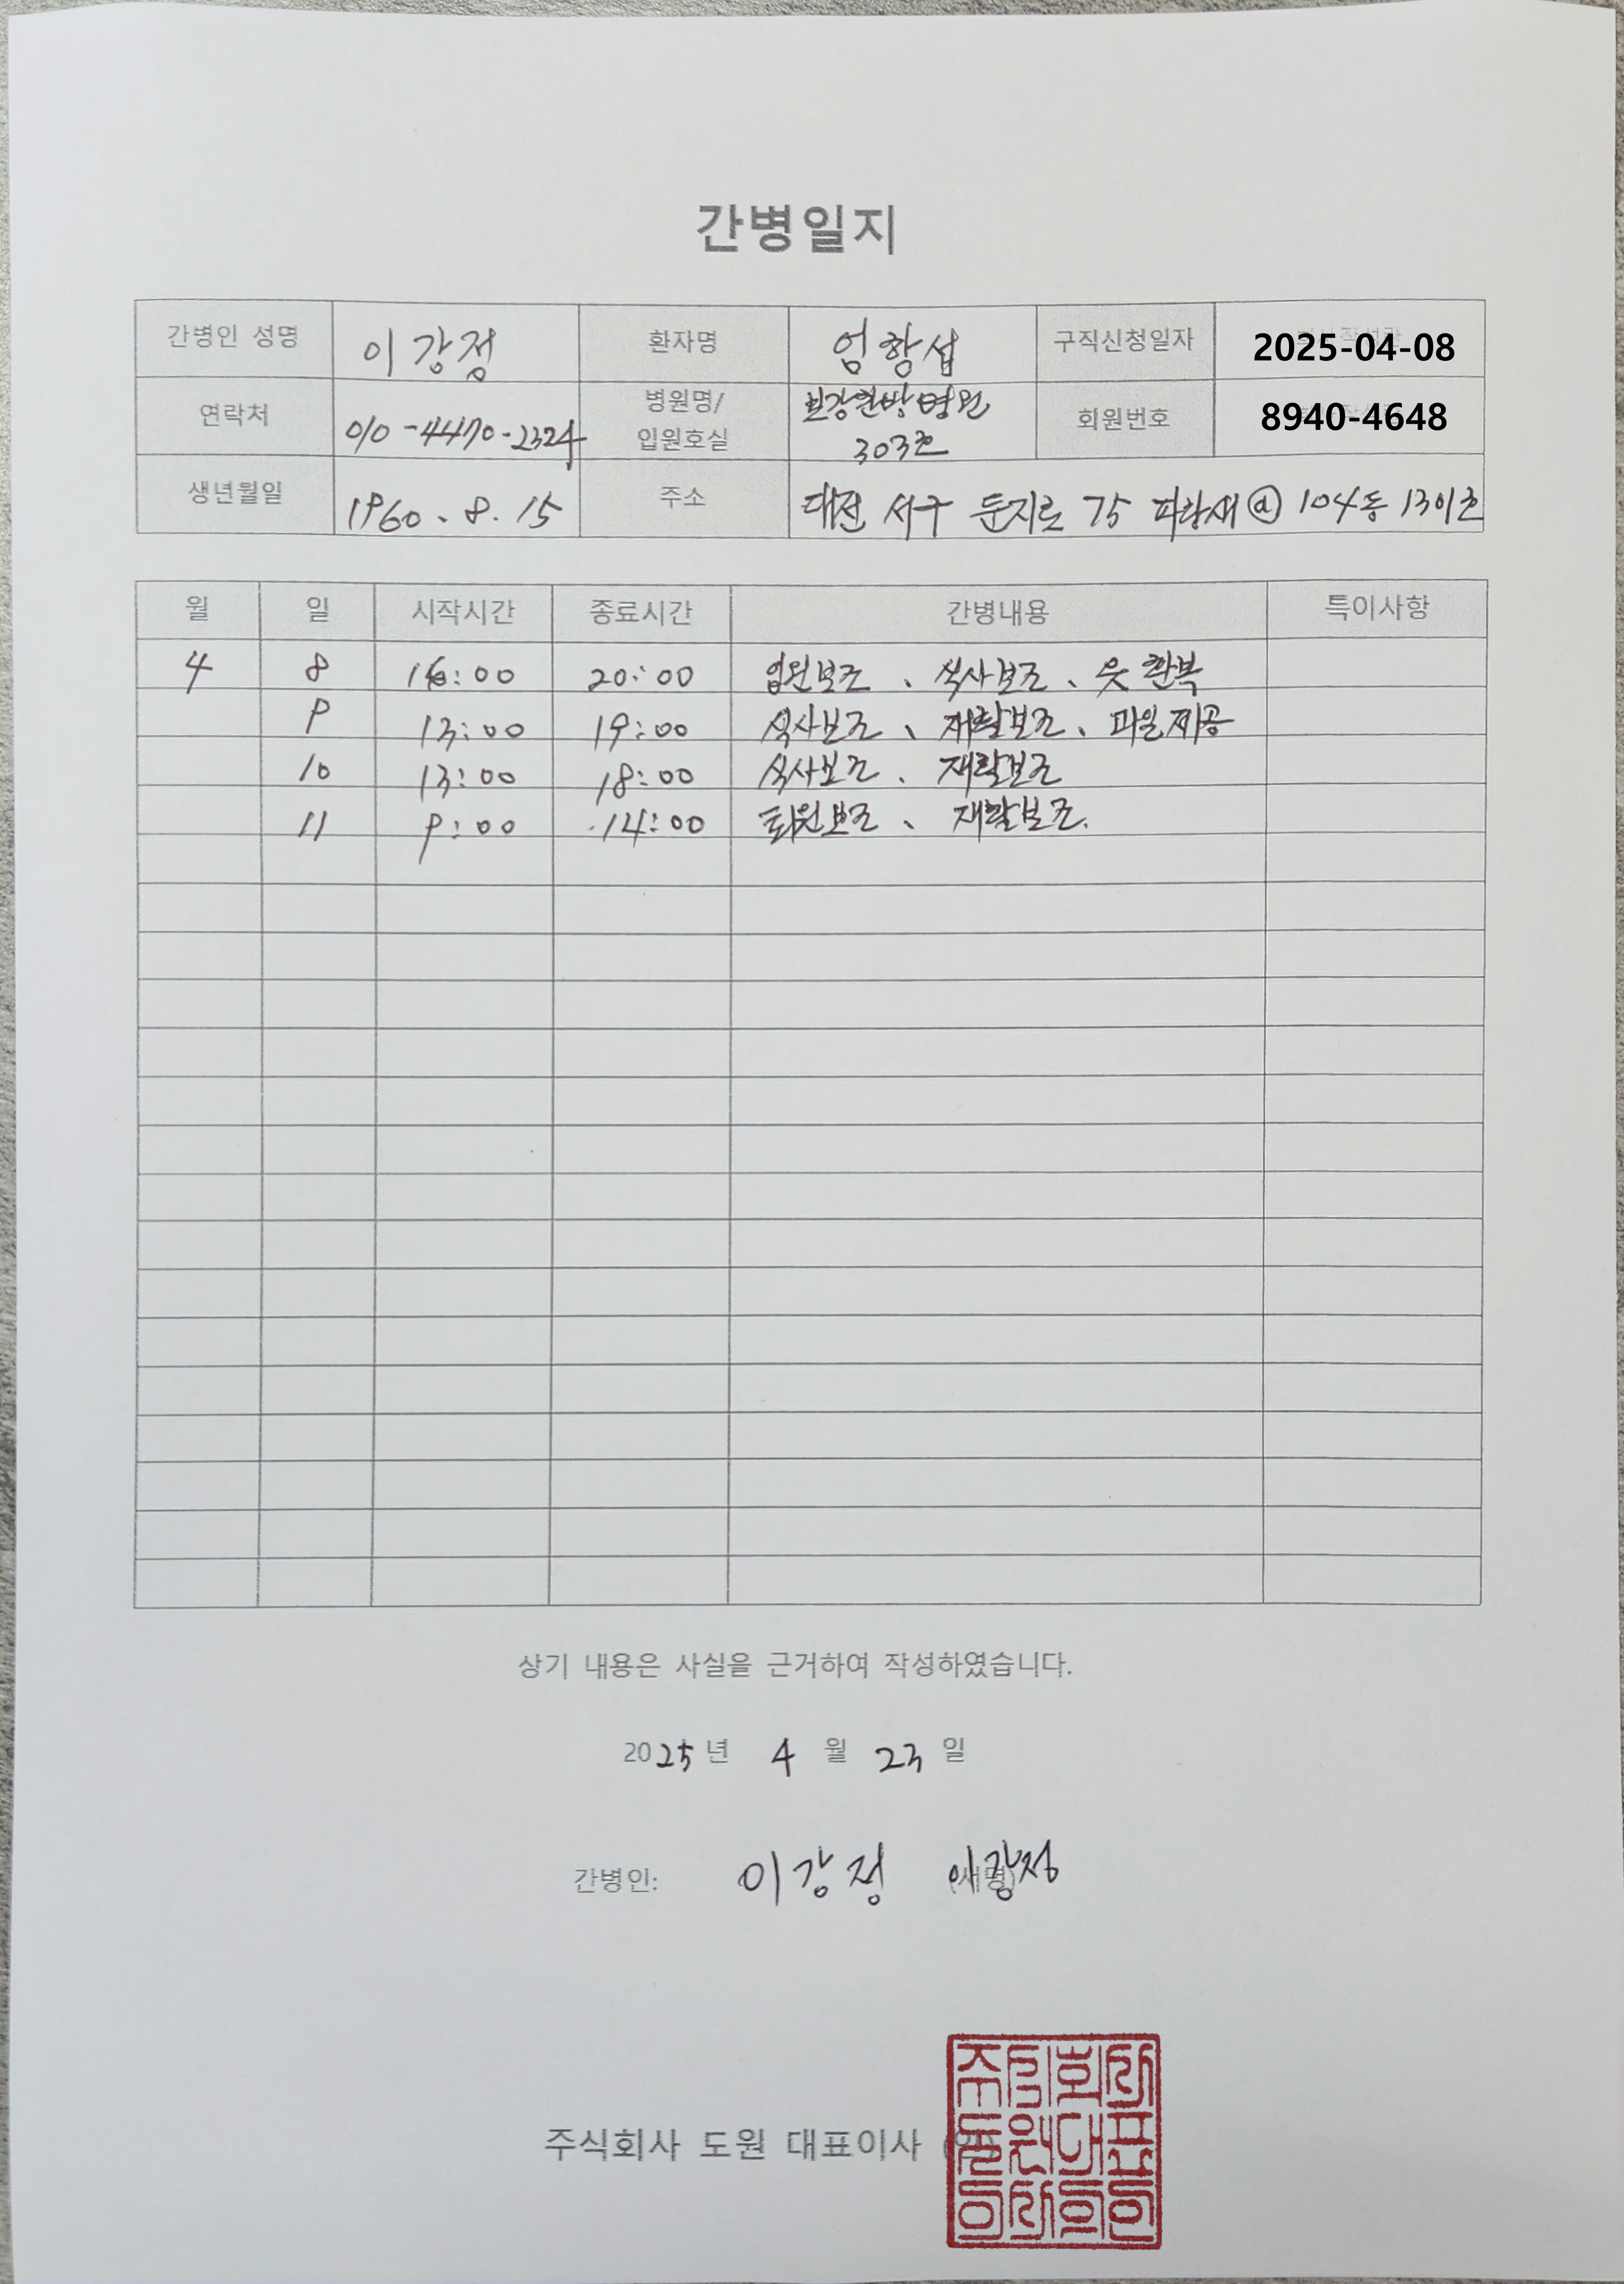 간병일지
간병인 성명 이강정 환자명 엄항섭 구직신청일자 2025-04-08
연락처 010-4470-2324 병원명/ 입원호실 보강한방병원 303호 회원번호 8940-4648
생년월일 1960.8.15 주소 대전 서구 둔지로 75 파랑새@ 104동 1301호
월 일 시작시간 종료시간 간병내용 특이사항
4 8 16:00 20:00 입원보조、식사보조、옷 환복
9 13:00 19:00 식사보조、재활보조、과일제공
10 13:00 18:00 식사보조、재활보조
11 9:00 14:00 퇴원보조、재활보조.
상기 내용은 사실을 근거하여 작성하였습니다.
2025년 4 월 23 일
간병인: 이강정 이강정
주식회사 도원 대표이사